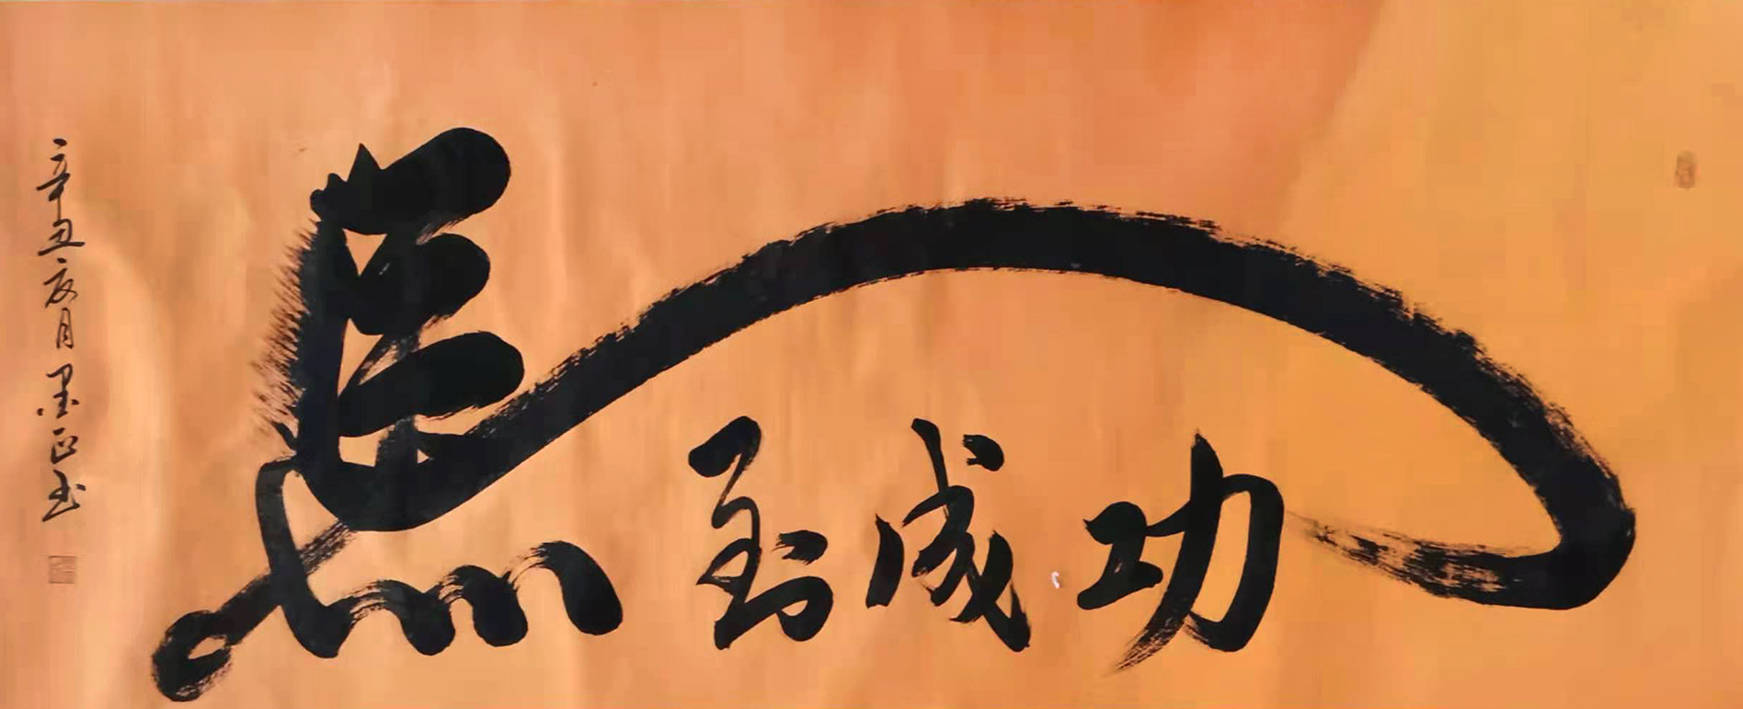 馬到成功
辛丑亥月墨正书